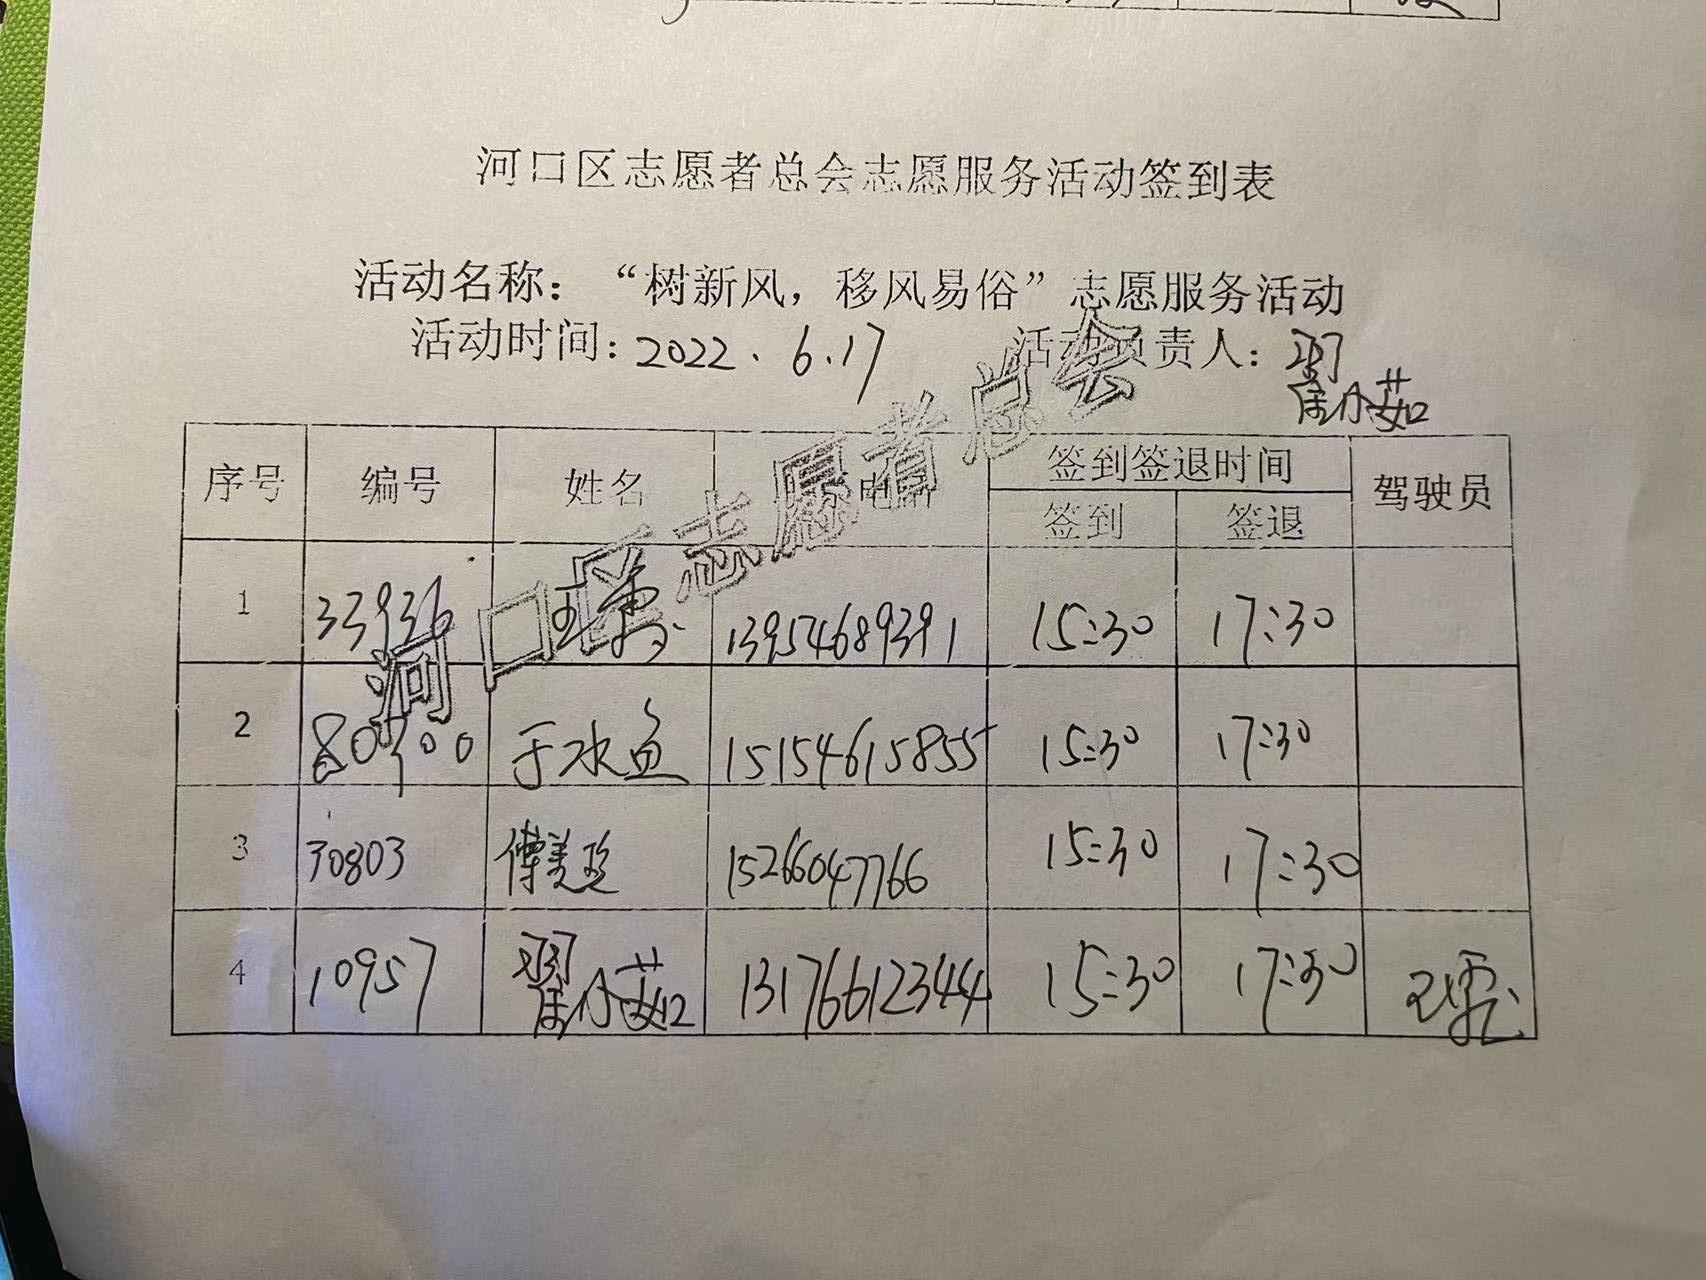 河口区志愿者总会志愿服务活动签到表
活动名称：“树新风，移风易俗”志愿服务活动
活动时间：2022.6.17 活动负责人：翟小茹
序号 编号 姓名 电话 签到签退时间 驾驶员
签到 签退
1 33936 13954689391 15:30 17:30
2 80900 于水鱼 15154615855 15:30 17:30
3 30803 傅美珍 15266047766 15:30 17:30
4 10957 翟小茹 13176612344 15:30 17:30
河口区志愿者总会